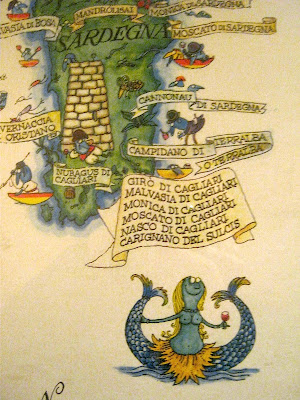 MANDROLISAI
MONICA DI SARDEGNA
VASIA DI BOSA
MOSCATO DI SARDEGNA
SARDEGNA
CANNONAU DI SARDEGNA
VERNACCIA
ORISTANO
CAMPIDANO DI TERRALBA
O TERRALBA
NURAGUS DI
CAGLIARI
GIRÒ DI CAGLIARI
MALVASIA DI CAGLIARI
MONICA DI CAGLIARI
MOSCATO DI CAGLIARI
NASCO DI CAGLIARI
CARIGNANO DEL SULCIS
N